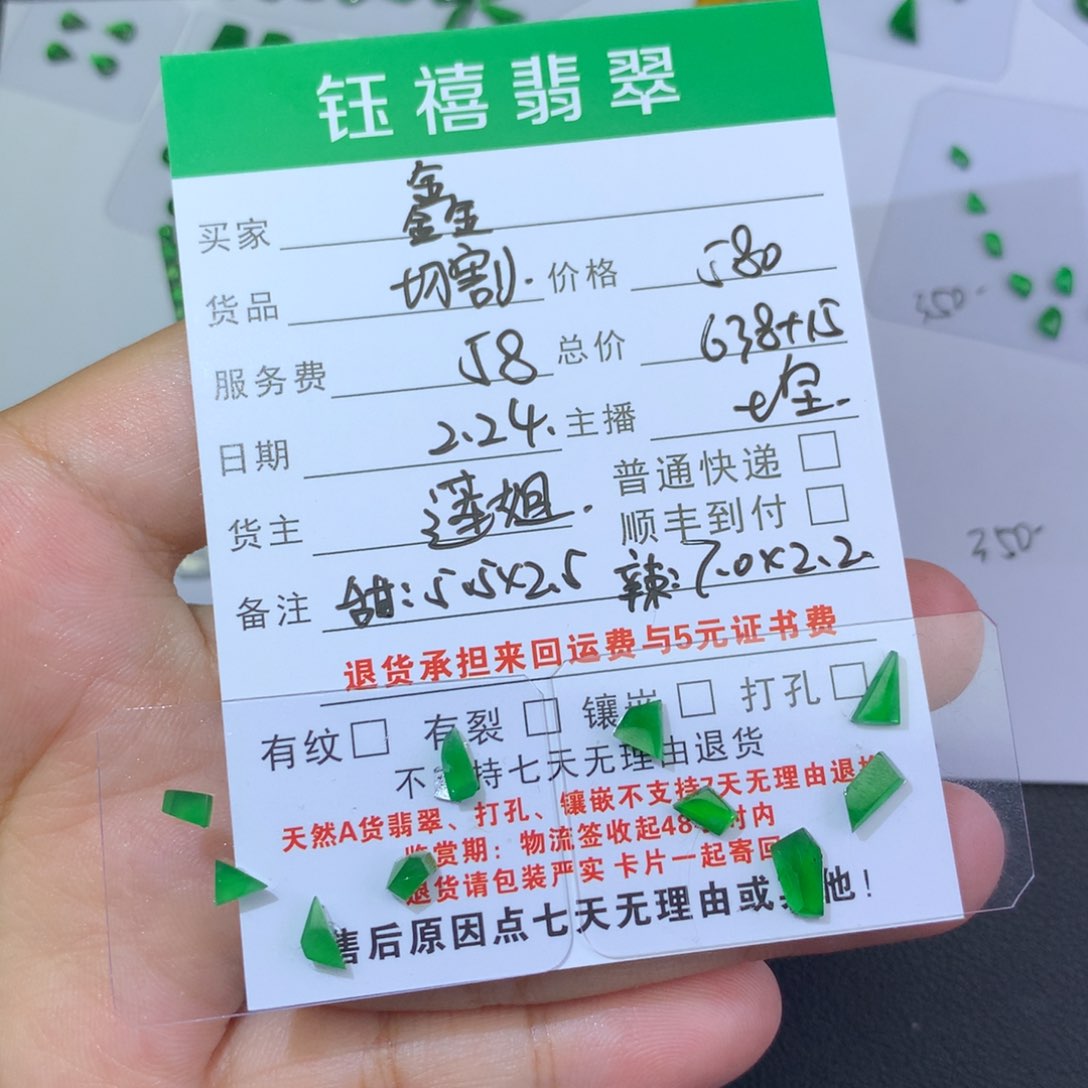 钰禧翡翠
买家 鑫
货品 切割. 价格 580
服务费 58 总价 638+15
日期 2.24. 主播
货主 莲姐. 普通快递 □
顺丰到付 □
备注 甜:5.5×2.5 辣:7.0×2.2
退货承担来回运费与5元证书费
有纹□ 有裂□ 镶嵌□ 打孔□
不支持七天无理由退货
天然A货翡翠、打孔、镶嵌不支持7天无理由退换
鉴赏期:物流签收起48小时内
退货请包装严实卡片一起寄回
售后原因点七天无理由或其他!
350-
350-